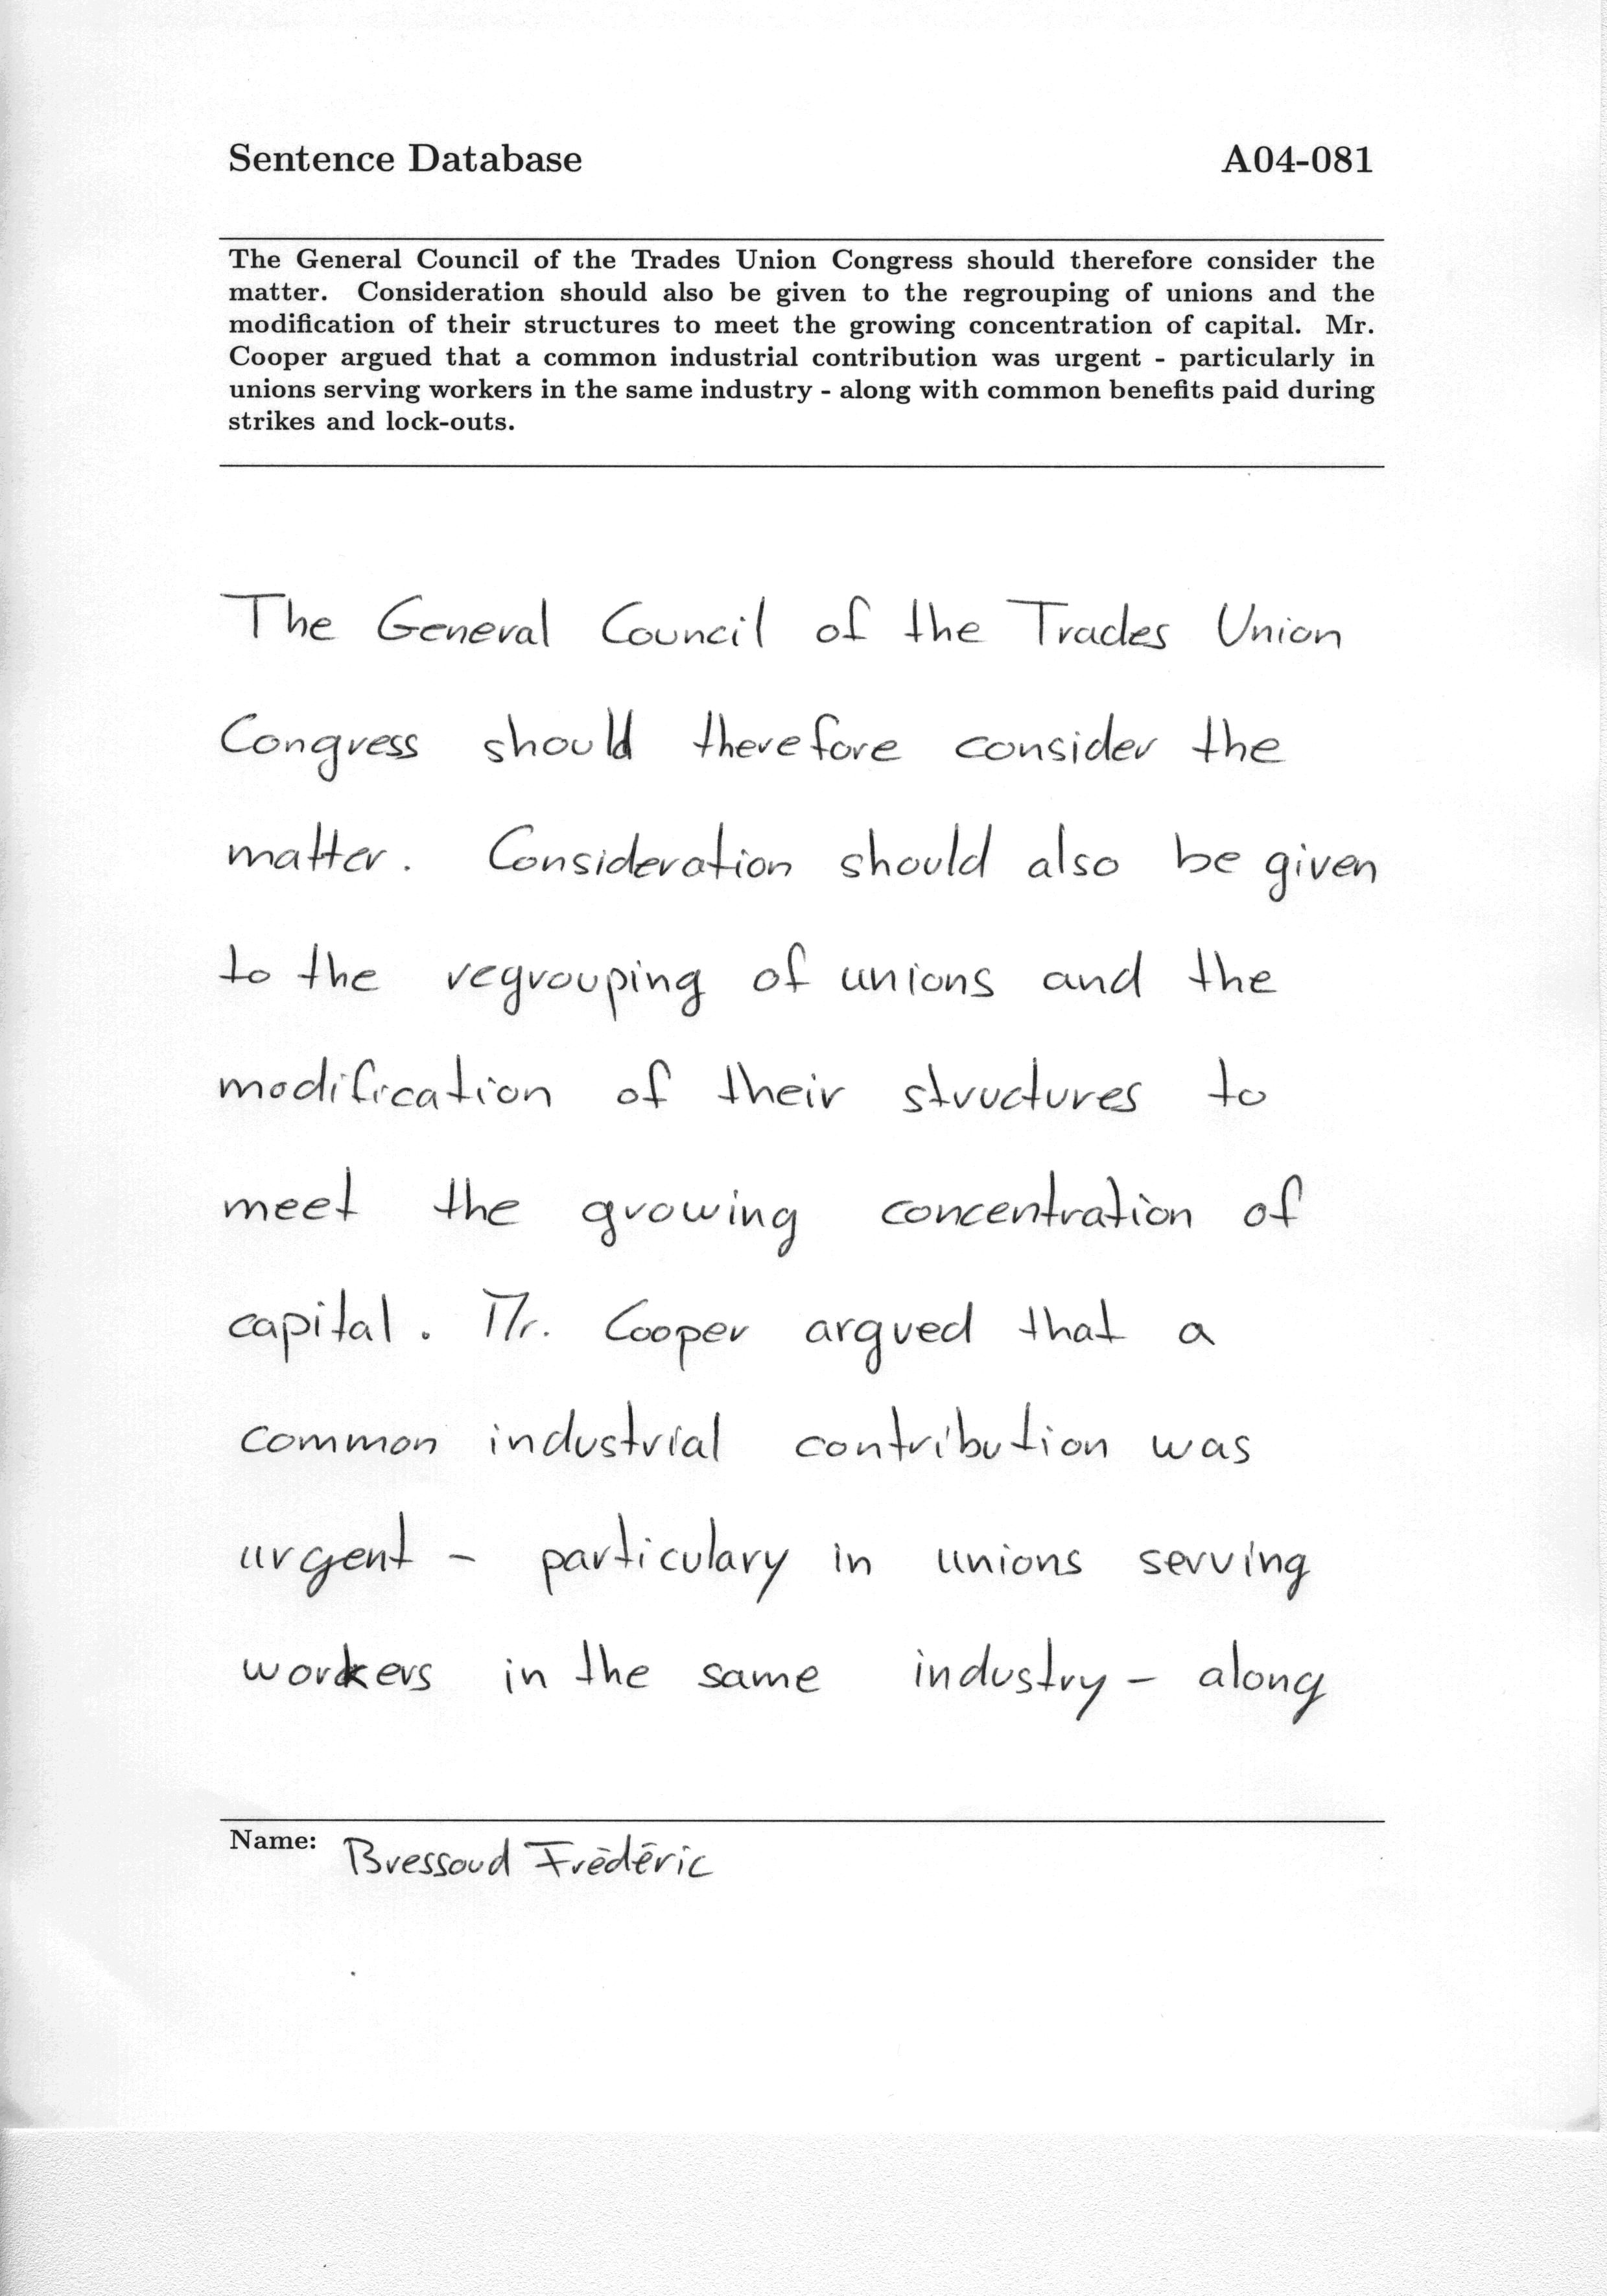 Sentence Database A04-081
The General Council of the Trades Union Congress should therefore consider the
matter. Consideration should also be given to the regrouping of unions and the
modification of their structures to meet the growing concentration of capital. Mr.
Cooper argued that a common industrial contribution was urgent - particularly in
unions serving workers in the same industry - along with common benefits paid during
strikes and lock-outs.
The General Council of the Trades Union
Congress should therefore consider the
matter. Consideration should also be given
to the regrouping of unions and the
modification of their structures to
meet the growing concentration of
capital. Mr. Cooper argued that a
common industrial contribution was
urgent - particulary in unions serving
workers in the same industry - along
Name: Bressoud Frédéric